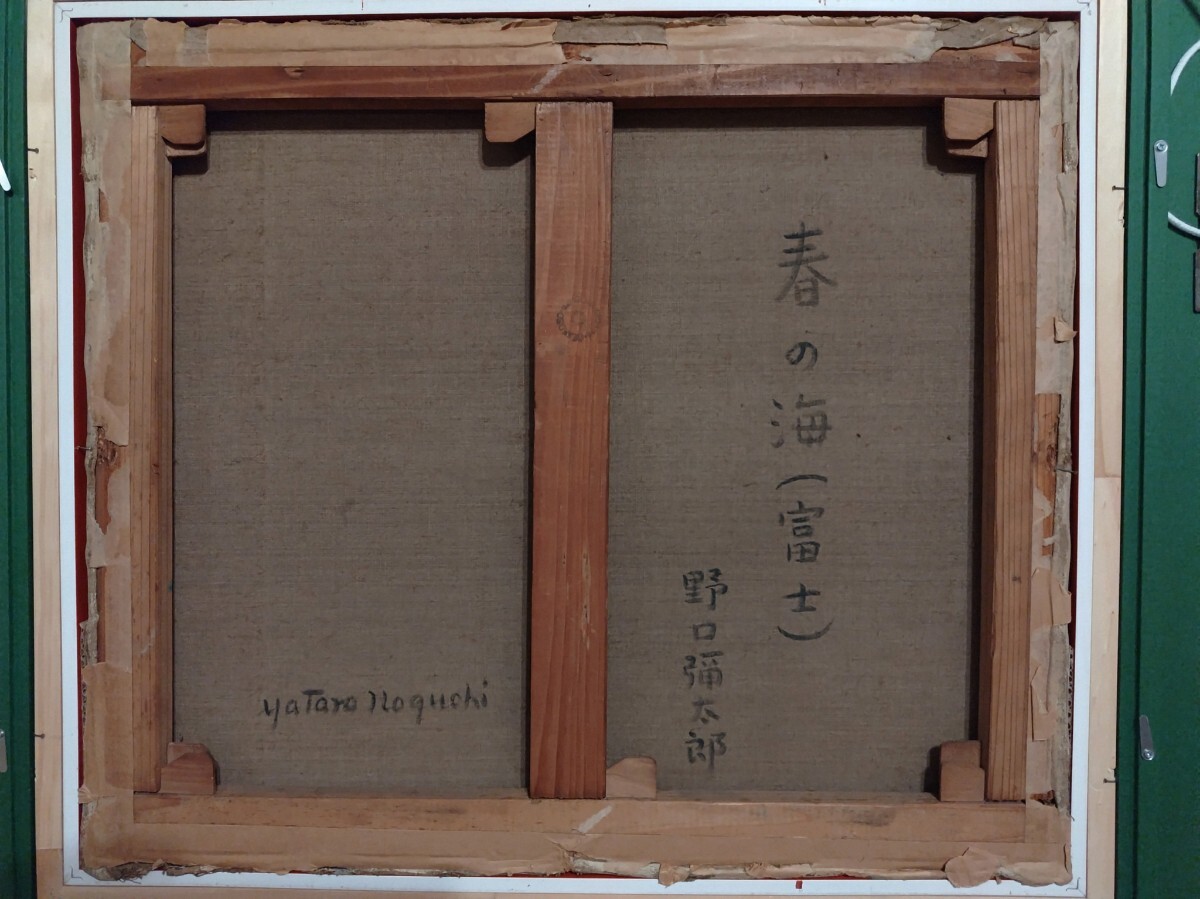 春の海(富士)
野口彌太郎
yaTaro Noguchi